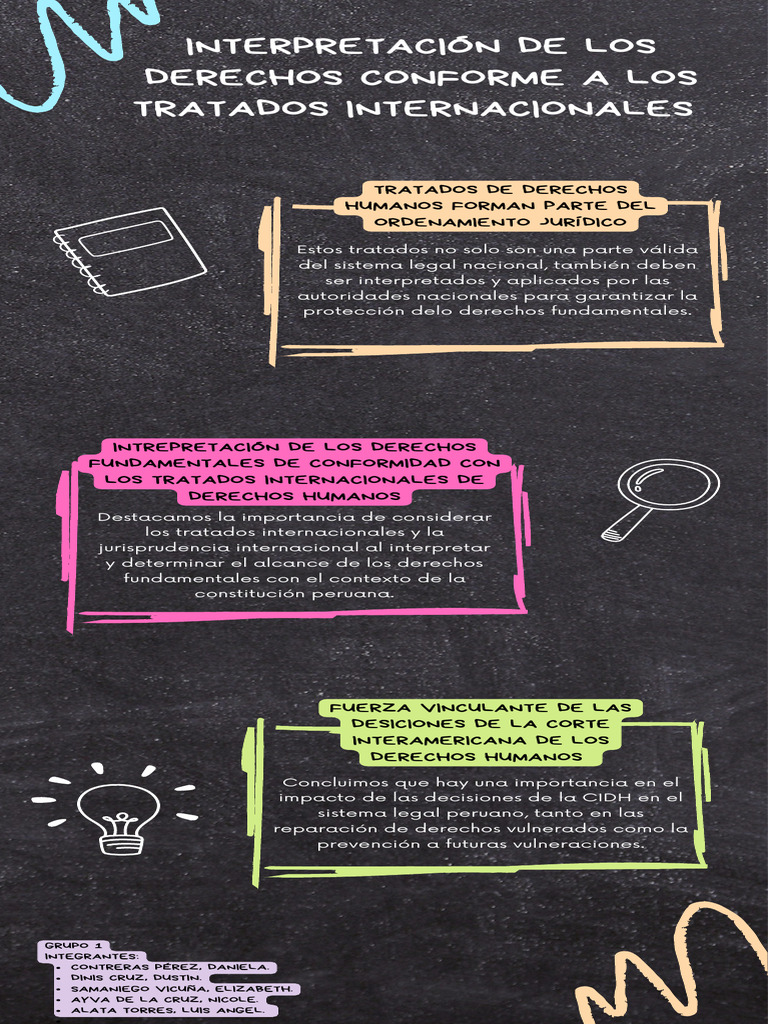 INTERPRETACIÓN DE LOS
DERECHOS CONFORME A LOS
TRATADOS INTERNACIONALES
TRATADOS DE DERECHOS
HUMANOS FORMAN PARTE DEL
ORDENAMIENTO JURÍDICO
Estos tratados no solo son una parte válida
del sistema legal nacional, también deben
ser interpretados y aplicados por las
autoridades nacionales para garantizar la
protección delo derechos fundamentales.
INTREPRETACIÓN DE LOS DERECHOS
FUNDAMENTALES DE CONFORMIDAD CON
LOS TRATADOS INTERNACIONALES DE
DERECHOS HUMANOS
Destacamos la importancia de considerar
los tratados internacionales y la
jurisprudencia internacional al interpretar
y determinar el alcance de los derechos
fundamentales con el contexto de la
constitución peruana.
FUERZA VINCULANTE DE LAS
DESICIONES DE LA CORTE
INTERAMERICANA DE LOS
DERECHOS HUMANOS
Concluimos que hay una importancia en el
impacto de las decisiones de la CIDH en el
sistema legal peruano, tanto en las
reparación de derechos vulnerados como la
prevención a futuras vulneraciones.
GRUPO 1
INTEGRANTES:
• CONTRERAS PÉREZ, DANIELA.
• DINIS CRUZ, DUSTIN.
• SAMANIEGO VICUÑA, ELIZABETH.
• AYVA DE LA CRUZ, NICOLE.
• ALATA TORRES, LUIS ANGEL.